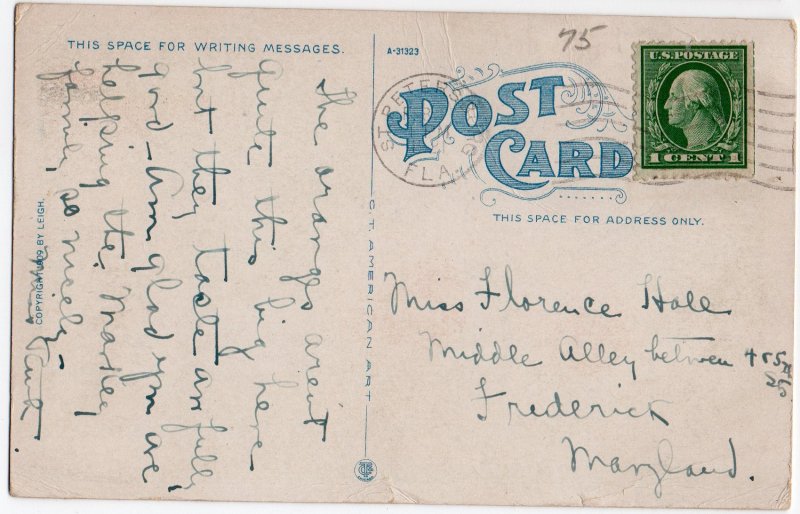 THIS SPACE FOR WRITING MESSAGES.
A-31323
75
U.S. POSTAGE
1 CENT 1
ST. PETERSBURG
FLA.
POST CARD
THIS SPACE FOR ADDRESS ONLY.
The oranges aren't
quite this big here
but they taste
good - Am glad you are
helping the
family so nicely -
COPYRIGHT 1909 BY LEIGH.
C.T. AMERICAN ART
Miss Florence Hall
Middle Alley between 4 & 5th
Sts
Frederick
Maryland.